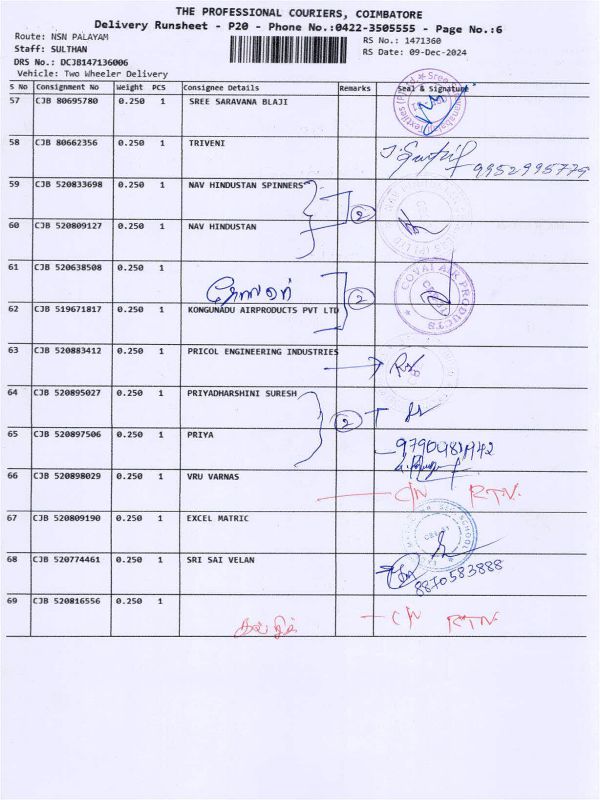 THE PROFESSIONAL COURIERS, COIMBATORE
Delivery Runsheet - P20 - Phone No.:0422-3505555 - Page No.:6
Route: NSN PALAYAM
RS No.: 1471360
Staff: SULTHAN
RS Date: 09-Dec-2024
DRS No.: DCJB147136006
Vehicle: Two Wheeler Delivery
S No Consignment No Weight PCS Consignee Details Remarks Seal & Signature
57 CJB 80695780 0.250 1 SREE SARAVANA BLAJI
58 CJB 80662356 0.250 1 TRIVENI 9952995779
59 CJB 520833698 0.250 1 NAV HINDUSTAN SPINNERS 2
60 CJB 520809127 0.250 1 NAV HINDUSTAN
61 CJB 520638508 0.250 1 2 COVAI AIR PRODUCTS
62 CJB 519671817 0.250 1 KONGUNADU AIRPRODUCTS PVT LTD
63 CJB 520883412 0.250 1 PRICOL ENGINEERING INDUSTRIES
64 CJB 520895027 0.250 1 PRIYADHARSHINI SURESH 2
65 CJB 520897506 0.250 1 PRIYA
66 CJB 520898029 0.250 1 VRU VARNAS C/N RTN.
67 CJB 520809190 0.250 1 EXCEL MATRIC
68 CJB 520774461 0.250 1 SRI SAI VELAN 8870583888
69 CJB 520816556 0.250 1 C/N RTN